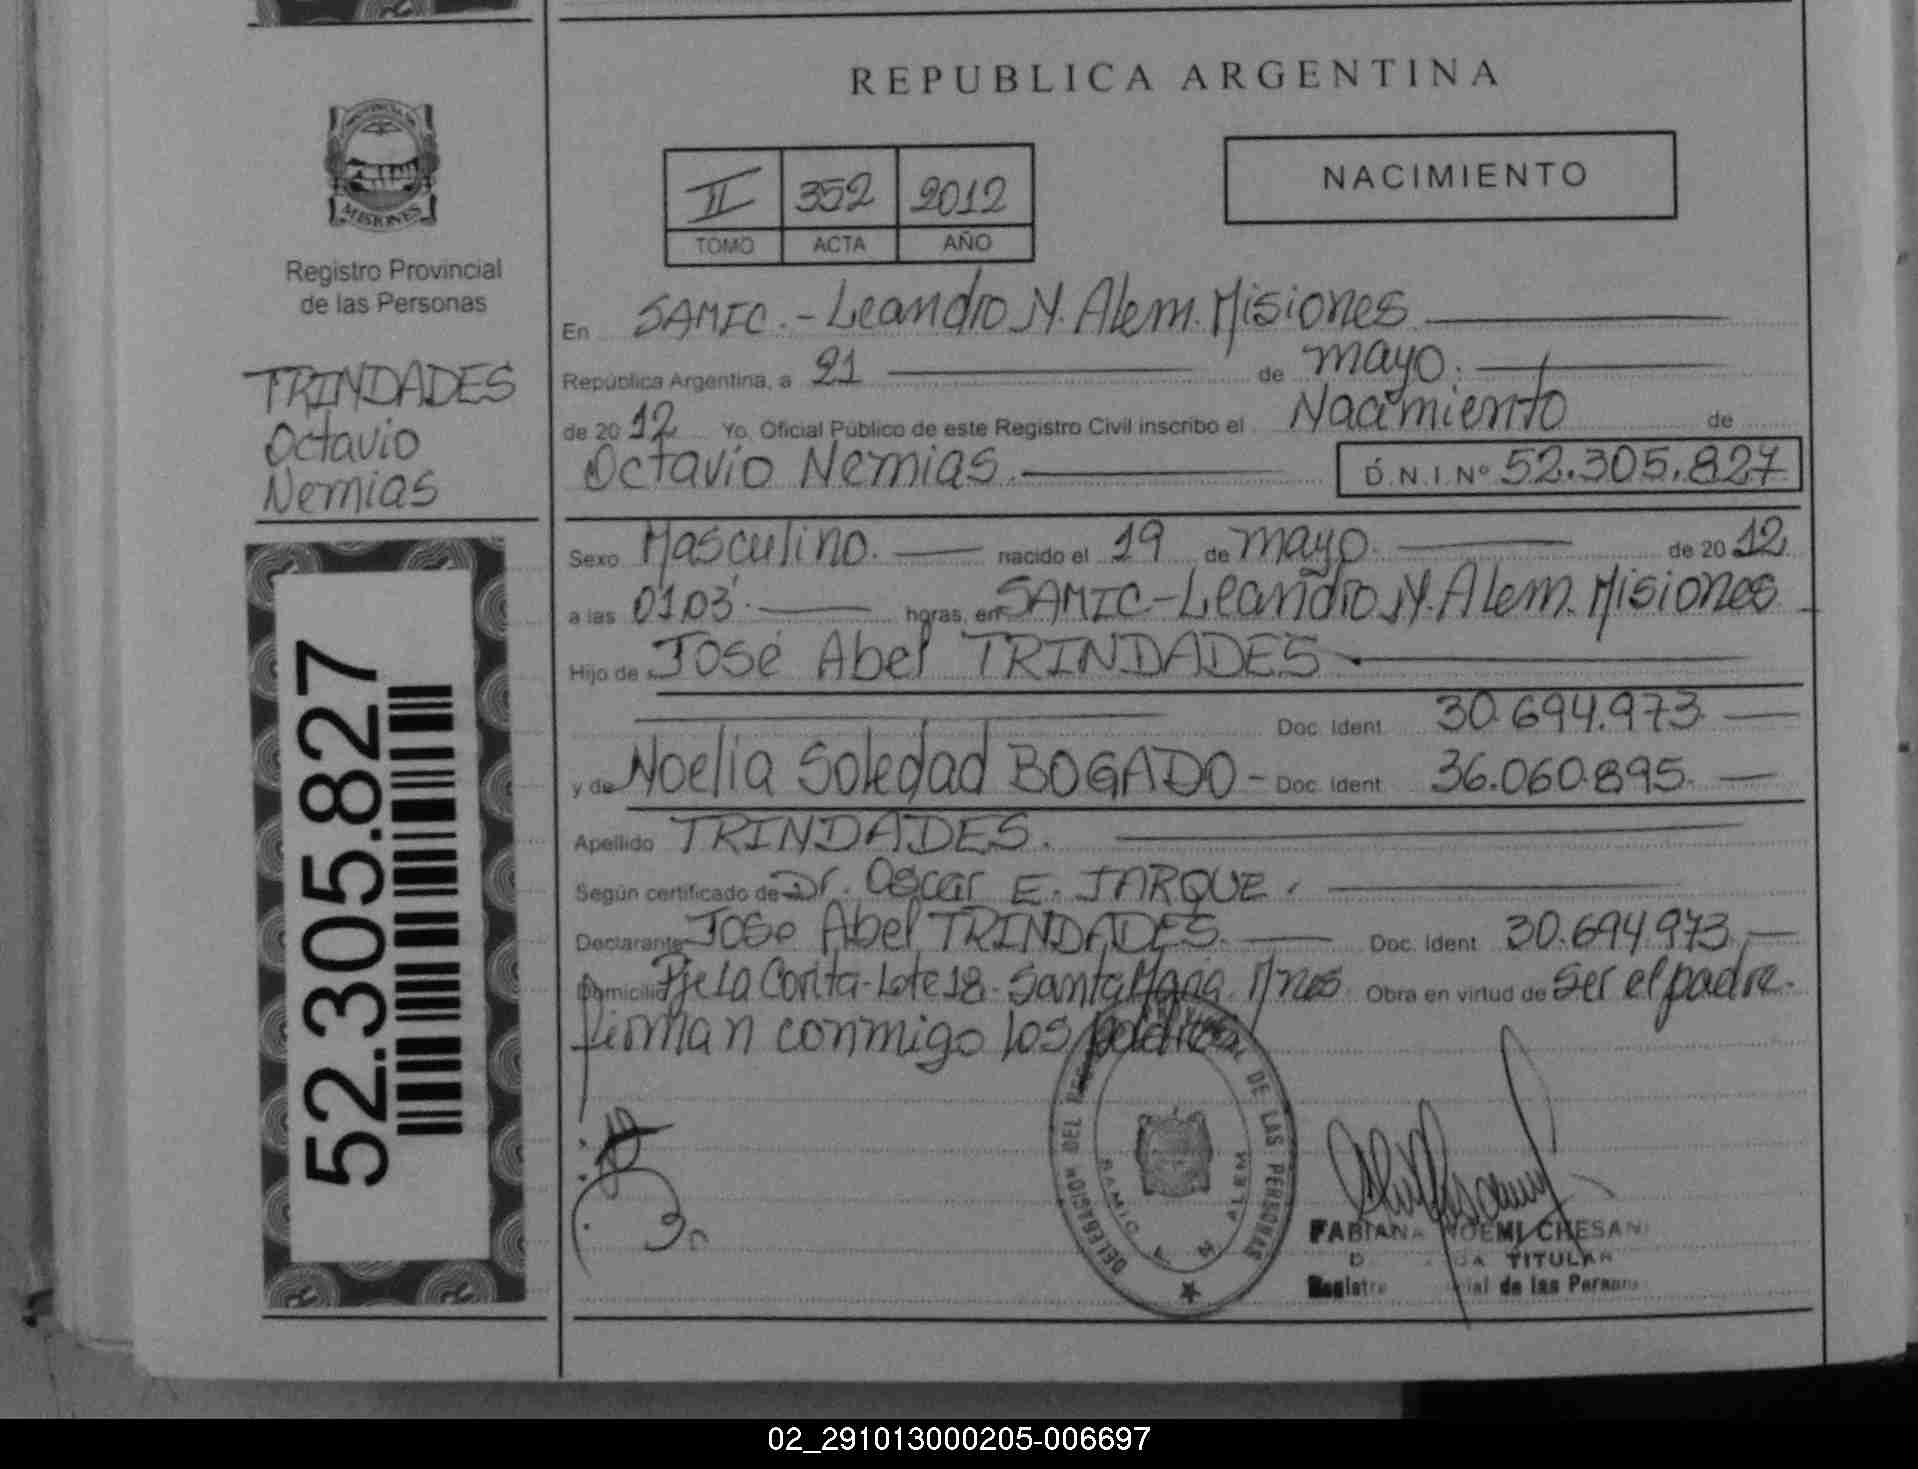 REPUBLICA ARGENTINA
MISIONES
Registro Provincial
de las Personas
TRINDADES
Octavio
Nemias
52.305.827
NACIMIENTO
II 352 2012
TOMO ACTA AÑO
En SAMIC.- Leandro N. Alem. Misiones
República Argentina, a 21 de mayo.
de 2012 Yo, Oficial Público de este Registro Civil inscribo el Nacimiento de
Octavio Nemias. D.N.I. Nº 52.305.827
Sexo Masculino. nacido el 19 de mayo. de 2012
a las 01,03'. horas, en SAMIC-Leandro N. Alem. Misiones
Hijo de José Abel TRINDADES
Doc. Ident. 30.694.973
y de Noelia Soledad BOGADO - Doc. Ident. 36.060.895.
Apellido TRINDADES.
Según certificado de Dr. Oscar E. JARQUE.
Declarante José Abel TRINDADES. Doc. Ident. 30.694.973
Domicilio Pje La Corita-Lote 18- Santa María. Mnes. Obra en virtud de ser el padre.
firman conmigo los padres
DELEGACION DEL REG PROVINCIAL DE LAS PERSONAS
SAMIC N ALEM
FABIANA NOEMI CHESANI
TITULAR
Registro de las Personas
02_291013000205-006697